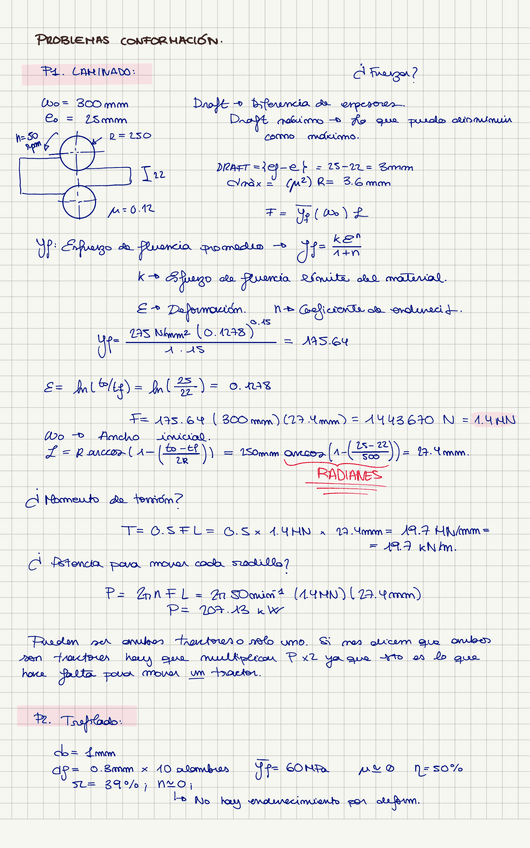 PROBLEMAS CONFORMACIÓN.
P1. LAMINADO:
¿Fuerza?
ωo = 300 mm
eo = 25mm
n=50 rpm
R = 250
22
μ = 0.12
Draft → Diferencia de espesores
Draft máximo → Lo que puedo disminuir
como máximo.
DRAFT = {ef-e} = 25-22 = 3mm
dmáx = (μ²) R = 3.6 mm
F = Yf (ωo) L
Yf: Esfuerzo de fluencia promedio → Yf = kεⁿ / 1+n
k → Esfuerzo de fluencia límite del material.
ε → Deformación. n → Coeficiente de endureci.
Yf = 275 N/mm² (0.1278)^0.15 / 1.15 = 175.64
ε = ln(to/tf) = ln(25/22) = 0.1278
F = 175.64 (300 mm)(27.4mm) = 1443670 N = 1.4 MN
ωo → Ancho inicial.
L = R arccos(1-(to-tf/2R)) = 250mm arccos(1-(25-22/500)) = 27.4mm.
RADIANES
¿Momento de torsión?
T = 0.5 F L = 0.5 × 1.4 MN × 27.4mm = 19.7 MN/mm =
= 19.7 kN/m.
¿Potencia para mover cada rodillo?
P = 2πn F L = 2π 50min⁻¹ (1.4MN)(27.4mm)
P = 207.13 kW
Pueden ser ambos tractores o solo uno. Si nos dicen que ambos
son tractores hay que multiplicar P x2 ya que sto es lo que
hace falta para mover un tractor.
P2. Trefilado:
do = 1mm
df = 0.8mm × 10 alambres Yf = 60 MPa μ ≃ 0 η = 50%
= 39%; n≃0;
↳ No hay endurecimiento por deform.